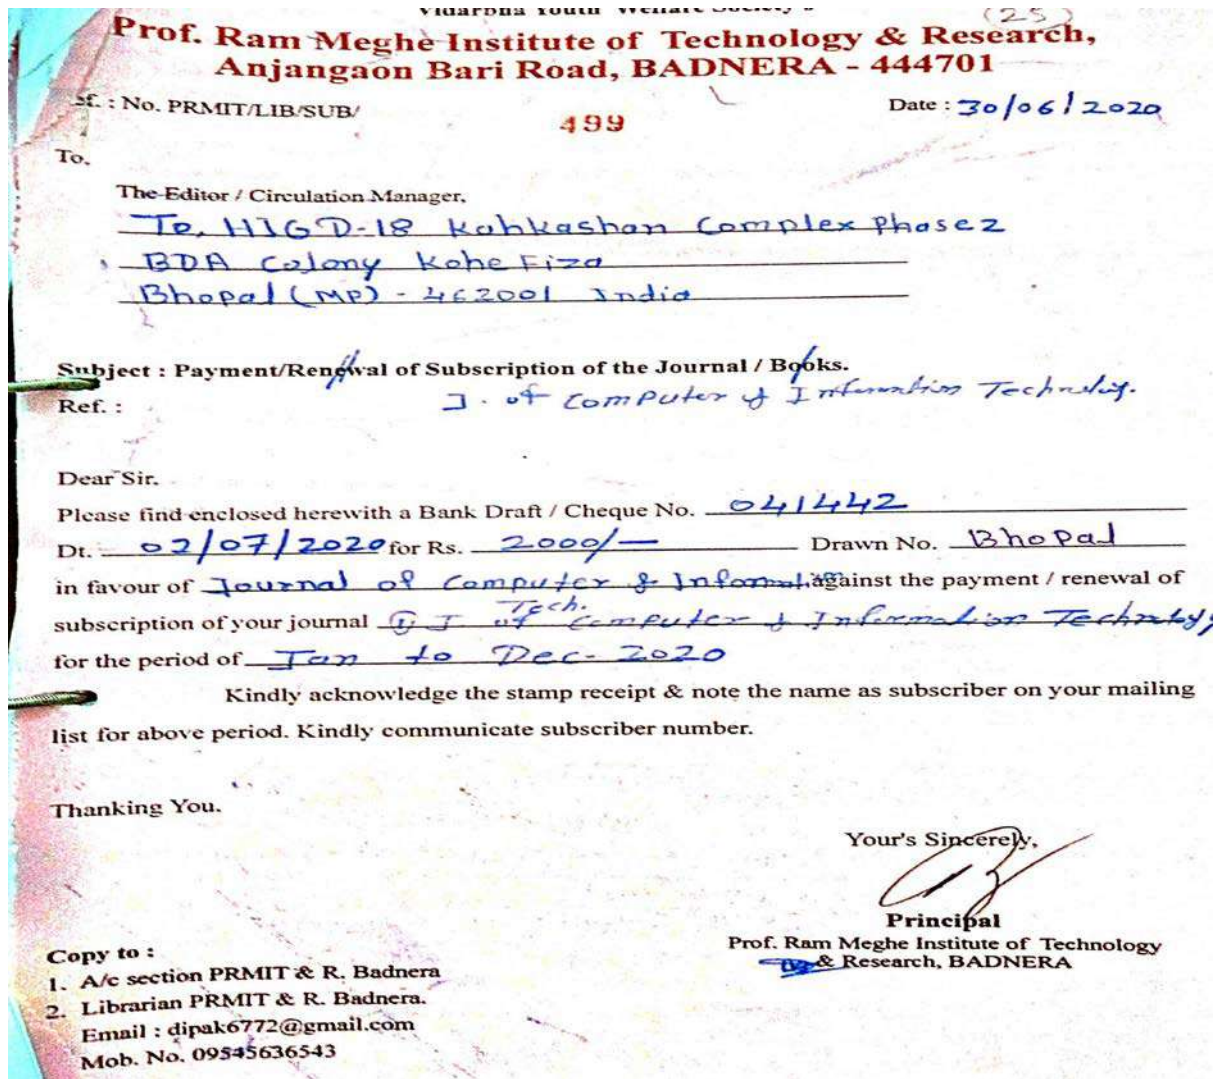 Vidarbha Youth Welfare Society's
(25)
Prof. Ram Meghe Institute of Technology & Research,
Anjangaon Bari Road, BADNERA - 444701
ef. : No. PRMIT/LIB/SUB/ 499 Date : 30/06/2020
To,
The Editor / Circulation Manager,
To, HIG D-18 Kahkashan Complex Phase 2
BDA Colony Kohe Fiza
Bhopal (MP) - 462001 India
Subject : Payment/Renewal of Subscription of the Journal / Books.
Ref. : J. of Computer & Information Technology.
Dear Sir.
Please find enclosed herewith a Bank Draft / Cheque No. 041442
Dt. 02/07/2020 for Rs. 2000/- Drawn No. Bhopal
in favour of Journal of Computer & Information Tech. against the payment / renewal of
subscription of your journal ① J. of Computer & Information Technology
for the period of Jan to Dec- 2020
Kindly acknowledge the stamp receipt & note the name as subscriber on your mailing
list for above period. Kindly communicate subscriber number.
Thanking You.
Your's Sincerely,
Principal
Prof. Ram Meghe Institute of Technology
& Research, BADNERA
Copy to :
1. A/c section PRMIT & R. Badnera
2. Librarian PRMIT & R. Badnera.
Email : dipak6772@gmail.com
Mob. No. 09545636543